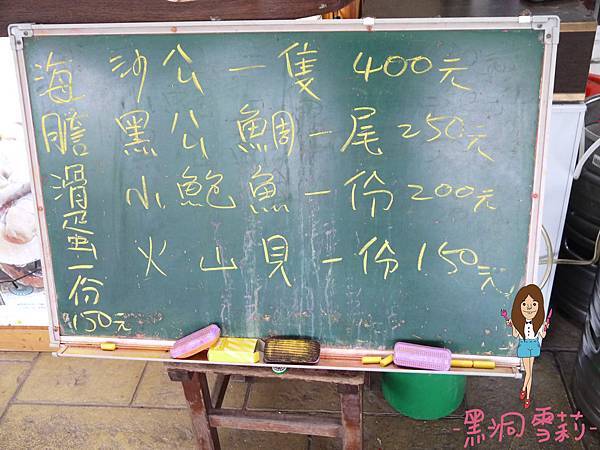 海膽滑蛋一份150元
沙公一隻400元
黑公鯛一尾250元
小鮑魚一份200元
火山貝一份150元
-黑洞雪莉-